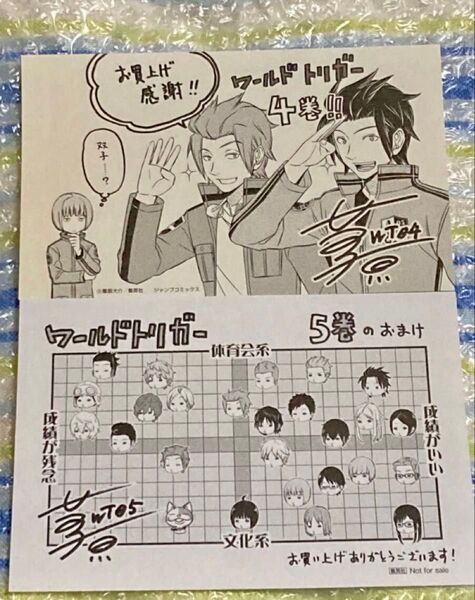 お買上げ
感謝!!
ワールドトリガー
4巻!!
双子ー?
WT04
©葦原大介/集英社　ジャンプコミックス
ワールドトリガー
5巻のおまけ
体育会系
成績が残念
成績がいい
WT05
文化系
お買い上げありがとうございます!
集英社 Not for sale